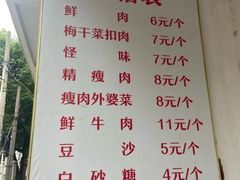 鲜肉 6元/个
梅干菜扣肉 7元/个
怪味 7元/个
精瘦肉 8元/个
瘦肉外婆菜 8元/个
鲜牛肉 11元/个
豆沙 5元/个
白砂糖 4元/个